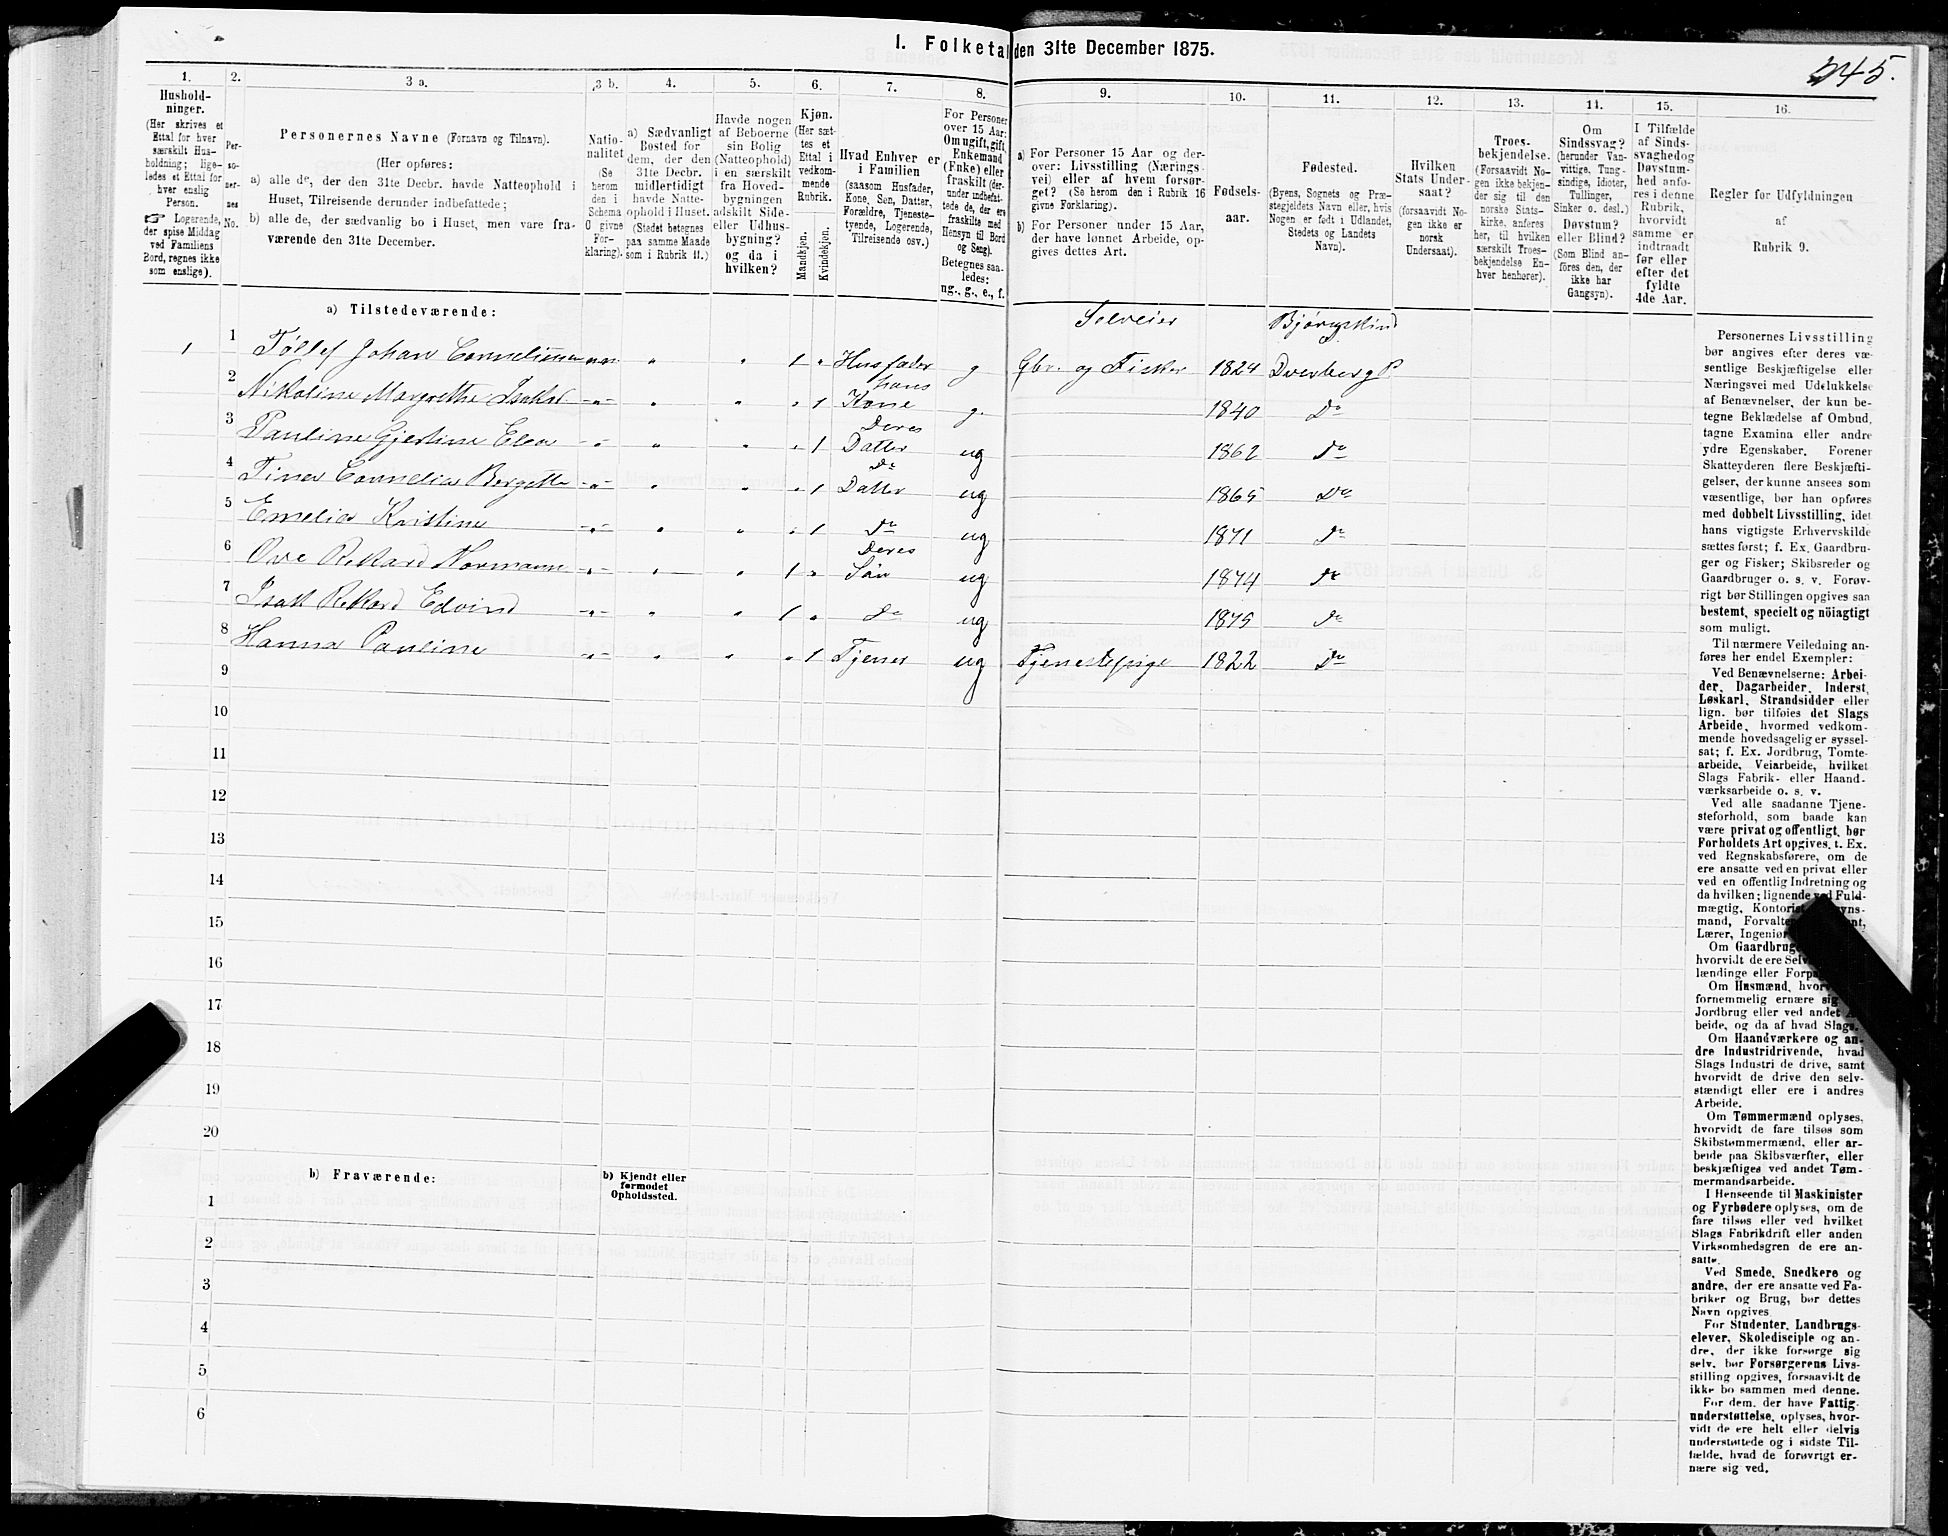 I. Folketal den 31te December 1875.
245.
1.
2.
3 a.
3 b.
4.
5.
6.
7.
8.
9.
10.
11.
12.
13.
14.
15.
16.
Hushold-
ninger.
(Her skrives et
Ettal for hver
særskilt Hus-
holdning; lige-
ledes et Ettal for
hver enslig
Person.
☞ Logerende,
der spise Middag
ved Familiens
Bord, regnes ikke
som enslige).
Per-
so-
ner-
nes
No.
Personernes Navne (Fornavn og Tilnavn).
(Her opføres:
a) alle de, der den 31te Decbr. havde Natteophold i
Huset, Tilreisende derunder indbefattede;
b) alle de, der sædvanlig bo i Huset, men vare fra-
værende den 31te December.
Natio-
nalitet
(Se
herom
den i
Schema
O givne
For-
klaring).
a) Sædvanligt
Bosted for
dem, der den
31te Decbr.
midlertidigt
havde Natte-
ophold i Huset.
(Stedet betegnes
paa samme Maade
som i Rubrik 11.)
Havde nogen
af Beboerne
sin Bolig
(Natteophold)
i en særskilt
fra Hoved-
bygningen
adskilt Side-
eller Udhus-
bygning?
og da i
hvilken?
Kjøn.
(Her sæt-
tes et
Ettal i
vedkom-
mende
Rubrik.
Mandkjøn.
Kvindekjøn.
Hvad Enhver er
i Familien
(saasom Husfader,
Kone, Søn, Datter,
Forældre, Tjeneste-
tyende, Logerende,
Tilreisende osv.)
For Personer
over 15 Aar:
Om ugift, gift,
Enkemand
(Enke) eller
fraskilt (der-
under indbefat-
tede de, der ere
fraskilte med
Hensyn til Bord
og Seng).
Betegnes saa-
ledes:
ug., g., e., f.
a) For Personer 15 Aar og der-
over: Livsstilling (Nærings-
vei) eller af hvem forsør-
get? (Se herom den i Rubrik 16
givne Forklaring).
b) For Personer under 15 Aar,
der have lønnet Arbeide, op-
gives dettes Art.
Fødsels-
aar.
Fødested.
(Byens, Sognets og Præ-
stegjeldets Navn eller, hvis
Nogen er født i Udlandet,
Stedets og Landets
Navn).
Hvilken
Stats Under-
saat?
(forsaavidt No-
gen ikke er
norsk
Undersaat).
Troes-
bekjendelse.
(Forsaavidt No-
gen ikke bekjen-
der sig til den
norske Stats-
kirke, anføres
her, til hvilken
særskilt Troes-
bekjendelse En-
hver henhører).
Om
Sindssvag?
(herunder Van-
vittige, Tung-
sindige, Idioter,
Tullinger,
Sinker o. desl.)
Døvstum?
eller Blind?
(Som Blind an-
føres den, der
ikke har
Gangsyn).
I Tilfælde
af Sinds-
svaghed og
Døvstum-
hed anfø-
res i denne
Rubrik,
hvorvidt
samme er
indtraadt
før eller
efter det
fyldte
4de Aar.
Regler for Udfyldningen
af
Rubrik 9.
a) Tilstedeværende:
Selveier
Bjørnskind
1 1 Tøllef Johan Corneliussen nn " " 1 " Husfader g Gbr. og Fisker 1824 Dverberg P
2 Nikoline Margrethe Isaksd -"- " " " 1 hans Kone g. 1840 Do
3 Pauline Gjertine Elea " " " " 1 Deres Datter ug 1862 Do
4 Tina Cornelia Bergette -"- " " " 1 Do Datter ug 1865 Do
5 Emelia Kristine -"- " " " 1 Do ug 1871 Do
6 Ove Rikkard Normann -"- " " 1 " Deres Søn ug 1874 Do
7 Isak Rikkard Edvind -"- " " 1 " Do ug 1875 Do
8 Hanna Pauline -"- " " " 1 Tjener ug Tjenestepige 1822 Do
9 ug
10
11
12
13
14
15
16
17
18
19
20
b) Fraværende:
b) Kjendt eller
formodet
Opholdssted.
1
2
3
4
5
6
Personernes Livsstilling
bør angives efter deres væ-
sentlige Beskjæftigelse eller
Næringsvei med Udelukkelse
af Benævnelser, der kun be-
tegne Beklædelse af Ombud,
tagne Examina eller andre
ydre Egenskaber. Forener
Skatteyderen flere Beskjæfti-
gelser, der kunne ansees som
væsentlige, bør han opføres
med dobbelt Livsstilling, idet
hans vigtigste Erhvervskilde
sættes først; f. Ex. Gaardbru-
ger og Fisker; Skibsreder og
Gaardbruger o. s. v. Forøv-
rigt bør Stillingen opgives saa
bestemt, specielt og nöiagtigt
som muligt.
Til nærmere Veiledning an-
føres her endel Exempler:
Ved Benævnelserne: Arbei-
der, Dagarbeider, Inderst,
Løskarl, Strandsidder eller
lign. bør tilføies det Slags
Arbeide, hvormed vedkom-
mende hovedsagelig er syssel-
sat; f. Ex. Jordbrug, Tomte-
arbeide, Veiarbeide, hvilket
Slags Fabrik- eller Haand-
værksarbeide o. s. v.
Ved alle saadanne Tjene-
steforhold, som baade kan
være privat og offentligt, bør
Forholdets Art opgives, t. Ex.
ved Regnskabsførere, om de
ere ansatte ved en privat eller
ved en offentlig Indretning og
da hvilken; lignende ved Fuld-
mægtig, Kontorist,
mand, Forvalter
Lærer, Ingeniør
Om Gaardbrug
hvorvidt de ere Selv
lændinge eller Forp
Om Husmænd, hvor
fornemmelig ernære sig
Jordbrug eller ved andet
beide, og da af hvad Slags.
Om Haandværkere og an-
dre Industridrivende, hvad
Slags Industri de drive, samt
hvorvidt de drive den selv-
stændigt eller ere i andres
Arbeide.
Om Tømmermænd oplyses,
hvorvidt de fare tilsøs som
Skibstømmermænd, eller ar-
beide paa Skibsværfter, eller
beskjæftiges ved andet Tøm-
mermandsarbeide.
I Henseende til Maskinister
og Fyrbødere oplyses, om de
fare tilsøs eller ved hvilket
Slags Fabrikdrift eller anden
Virksomhedsgren de ere an-
satte.
Ved Smede, Snedkere og
andre, der ere ansatte ved Fa-
briker og Brug, bør dettes
Navn opgives
For Studenter, Landbrugs-
elever, Skoledisciple og an-
dre, der ikke forsørge sig
selv, bør Forsørgerens Livs-
stilling opgives, forsaavidt de
ikke bo sammen med denne.
For dem, der have Fattig-
understøttelse, oplyses, hvor-
vidt de ere helt eller delvis
understøttede og i sidste Til-
fælde, hvad de forøvrigt er-
nære sig ved.